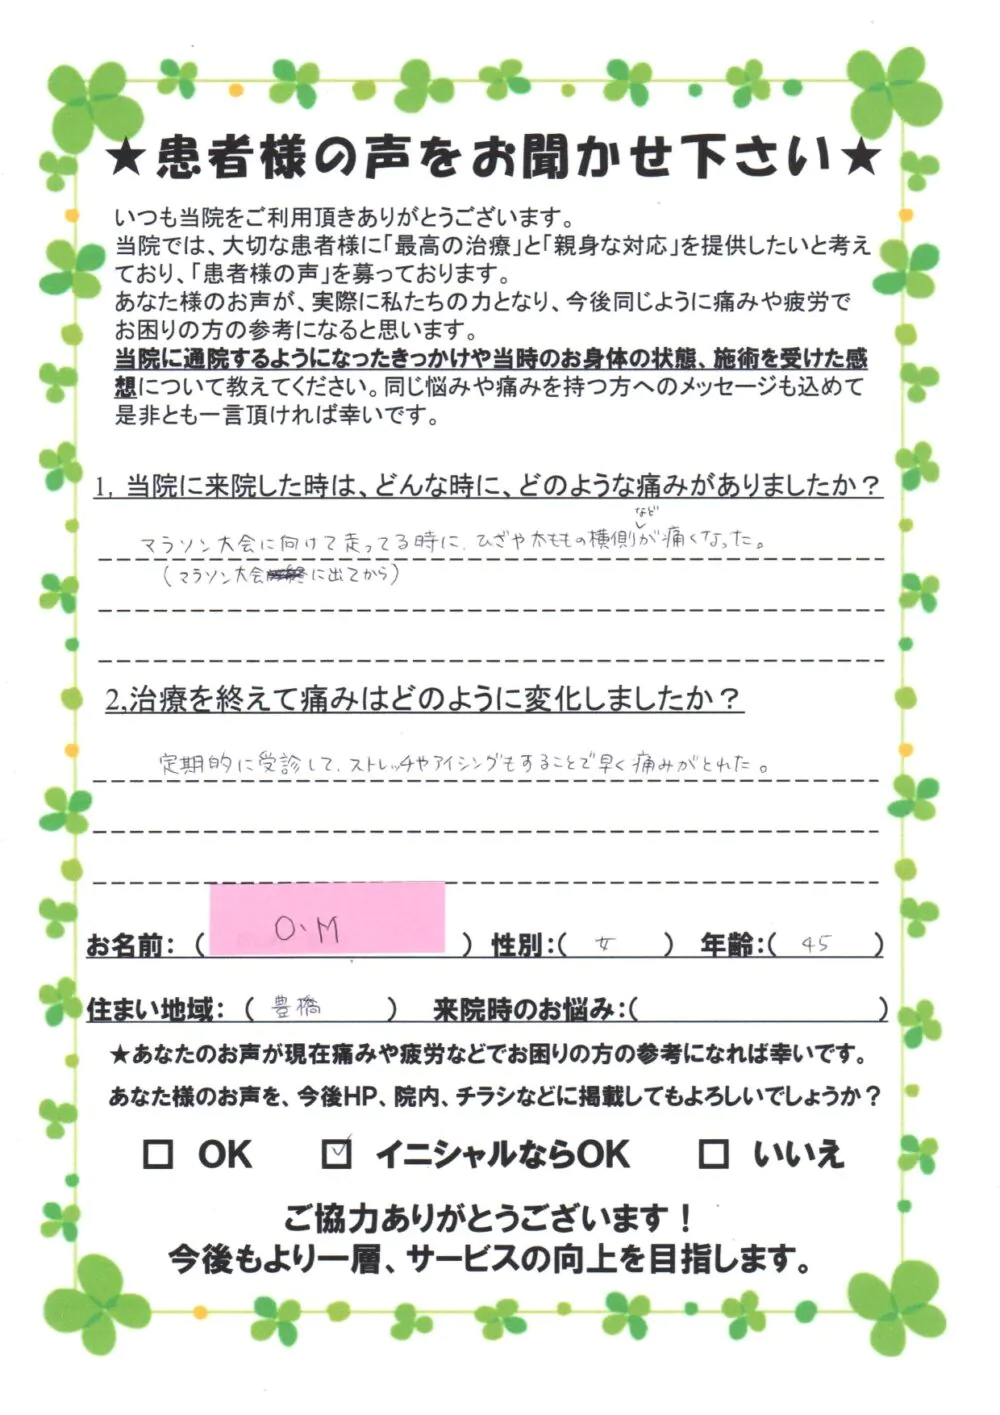 ★患者様の声をお聞かせ下さい★
いつも当院をご利用頂きありがとうございます。
当院では、大切な患者様に「最高の治療」と「親身な対応」を提供したいと考え
ており、「患者様の声」を募っております。
あなた様のお声が、実際に私たちの力となり、今後同じように痛みや疲労で
お困りの方の参考になると思います。
当院に通院するようになったきっかけや当時のお身体の状態、施術を受けた感
想について教えてください。同じ悩みや痛みを持つ方へのメッセージも込めて
是非とも一言頂ければ幸いです。
1, 当院に来院した時は、どんな時に、どのような痛みがありましたか？
など
マラソン大会に向けて走ってる時に、ひざや太ももの横側が痛くなった。
(マラソン大会に出てから)
2,治療を終えて痛みはどのように変化しましたか？
定期的に受診して、ストレッチやアイシングもすることで早く痛みがとれた。
お名前:（ O.M ）性別:（ 女 ）年齢:（ 45 ）
住まい地域:（ 豊橋 ）来院時のお悩み:（ ）
★あなたのお声が現在痛みや疲労などでお困りの方の参考になれば幸いです。
あなた様のお声を、今後HP、院内、チラシなどに掲載してもよろしいでしょうか？
□ OK ☑ イニシャルならOK □ いいえ
ご協力ありがとうございます！
今後もより一層、サービスの向上を目指します。